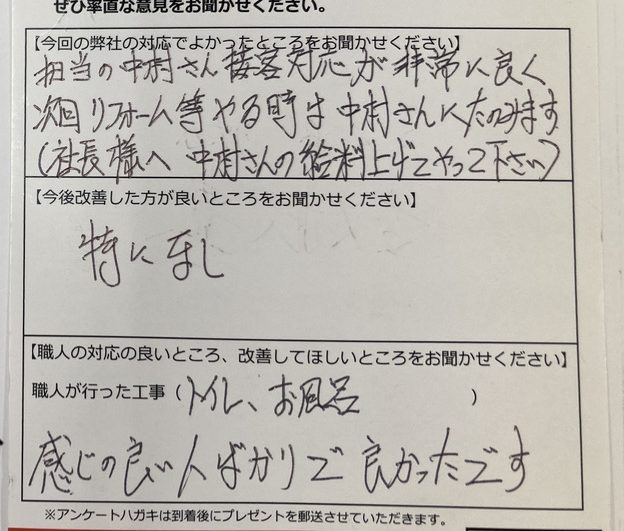 ぜひ率直な意見をお聞かせください。
【今回の弊社の対応でよかったところをお聞かせください】
担当の中村さん接客対応が非常に良く
次回リフォーム等やる時は中村さんにたのみます
(社長様へ 中村さんの給料上げてやって下さい)
【今後改善した方が良いところをお聞かせください】
特になし
【職人の対応の良いところ、改善してほしいところをお聞かせください】
職人が行った工事(トイレ、お風呂)
感じの良い人ばかりで良かったです
※アンケートハガキは到着後にプレゼントを郵送させていただきます。